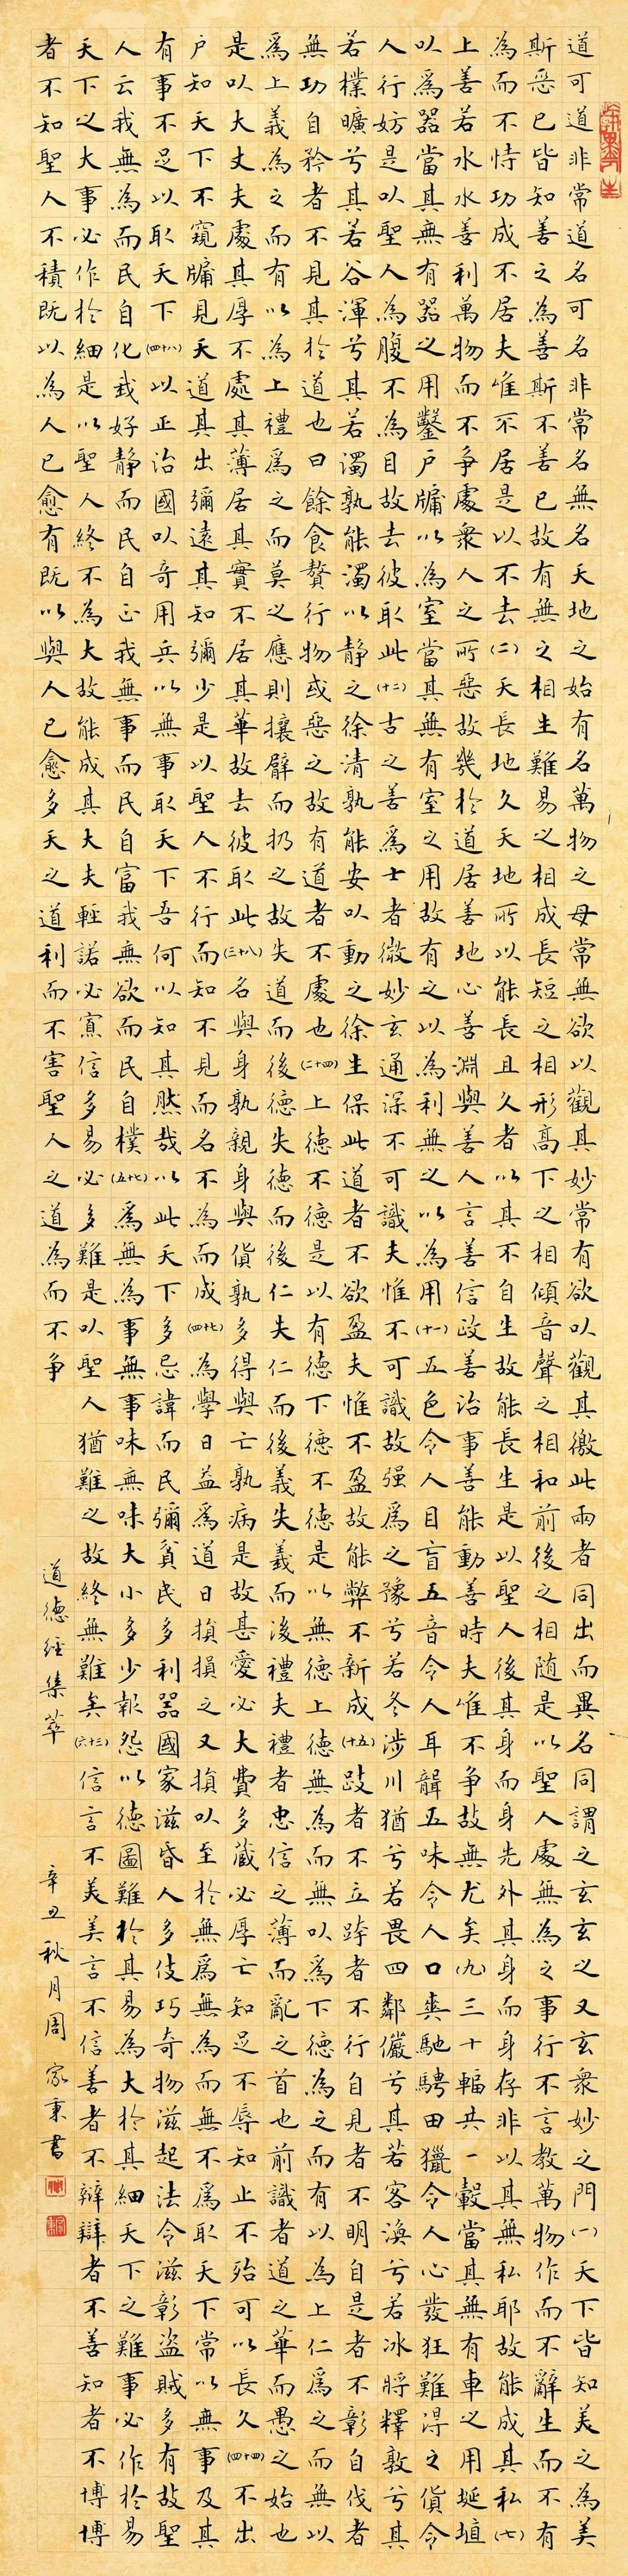 道可道非常道名可名非常名無名天地之始有名萬物之母常無欲以觀其妙常有欲以觀其徼此兩者同出而異名同謂之玄玄之又玄衆妙之門(一)天下皆知美之為美
斯惡已皆知善之為善斯不善已故有無之相生難易之相成長短之相形高下之相傾音聲之相和前後之相随是以聖人處無為之事行不言教萬物作而不辭生而不有
為而不恃功成不居夫唯不居是以不去(二)天長地久天地所以能長且久者以其不自生故能長生是以聖人後其身而身先外其身而身存非以其無私耶故能成其私(七)
上善若水水善利萬物而不争處衆人之所惡故幾於道居善地心善淵與善人言善信政善治事善能動善時夫唯不争故無尤矣(九)三十輻共一轂當其無有車之用埏埴
以爲器當其無有器之用鑿戶牖以為室當其無有室之用故有之以為利無之以為用(十一)五色令人目盲五音令人耳聾五味令人口爽馳騁田獵令人心發狂難得之貨令
人行妨是以聖人為腹不為目故去彼取此(十二)古之善爲士者微妙玄通深不可識夫惟不可識故强爲之豫兮若冬涉川猶兮若畏四鄰儼兮其若客渙兮若冰將釋敦兮其
若樸曠兮其若谷渾兮其若濁孰能濁以静之徐清孰能安以動之徐生保此道者不欲盈夫惟不盈故能弊不新成(十五)跂者不立跨者不行自見者不明自是者不彰自伐者
無功自矜者不見其於道也曰餘食贅行物或惡之故有道者不處也(二十四)上德不德是以有德下德不德是以無德上德無為而無以爲下德為之而有以為上仁爲之而無以
爲上義為之而有以為上禮爲之而莫之應則攘臂而扔之故失道而後德失德而後仁失仁而後義失義而後禮夫禮者忠信之薄而亂之首也前識者道之華而愚之始也
是以大丈夫處其厚不處其薄居其實不居其華故去彼取此(三十八)名與身孰親身與貨孰多得與亡孰病是故甚愛必大費多藏必厚亡知足不辱知止不殆可以長久(四十四)不出
户知天下不窺牖見天道其出彌遠其知彌少是以聖人不行而知不見而名不為而成(四十七)為學日益爲道日損損之又損以至於無爲無為而無不爲取天下常以無事及其
有事不足以取天下(四十八)以正治國以奇用兵以無事取天下吾何以知其然哉以此天下多忌諱而民彌貧民多利器國家滋昏人多伎巧奇物滋起法令滋彰盜賊多有故聖
人云我無為而民自化我好静而民自正我無事而民自富我無欲而民自樸(五十七)爲無為事無事味無味大小多少報怨以德圖難於其易為大於其細天下之難事必作於易
天下之大事必作於細是以聖人終不為大故能成其大夫輕諾必寡信多易必多難是以聖人猶難之故終無難矣(六十三)信言不美美言不信善者不辯辯者不善知者不博博
者不知聖人不積既以為人已愈有既以與人已愈多天之道利而不害聖人之道為而不争
道德經集萃 辛丑秋月周家秉書